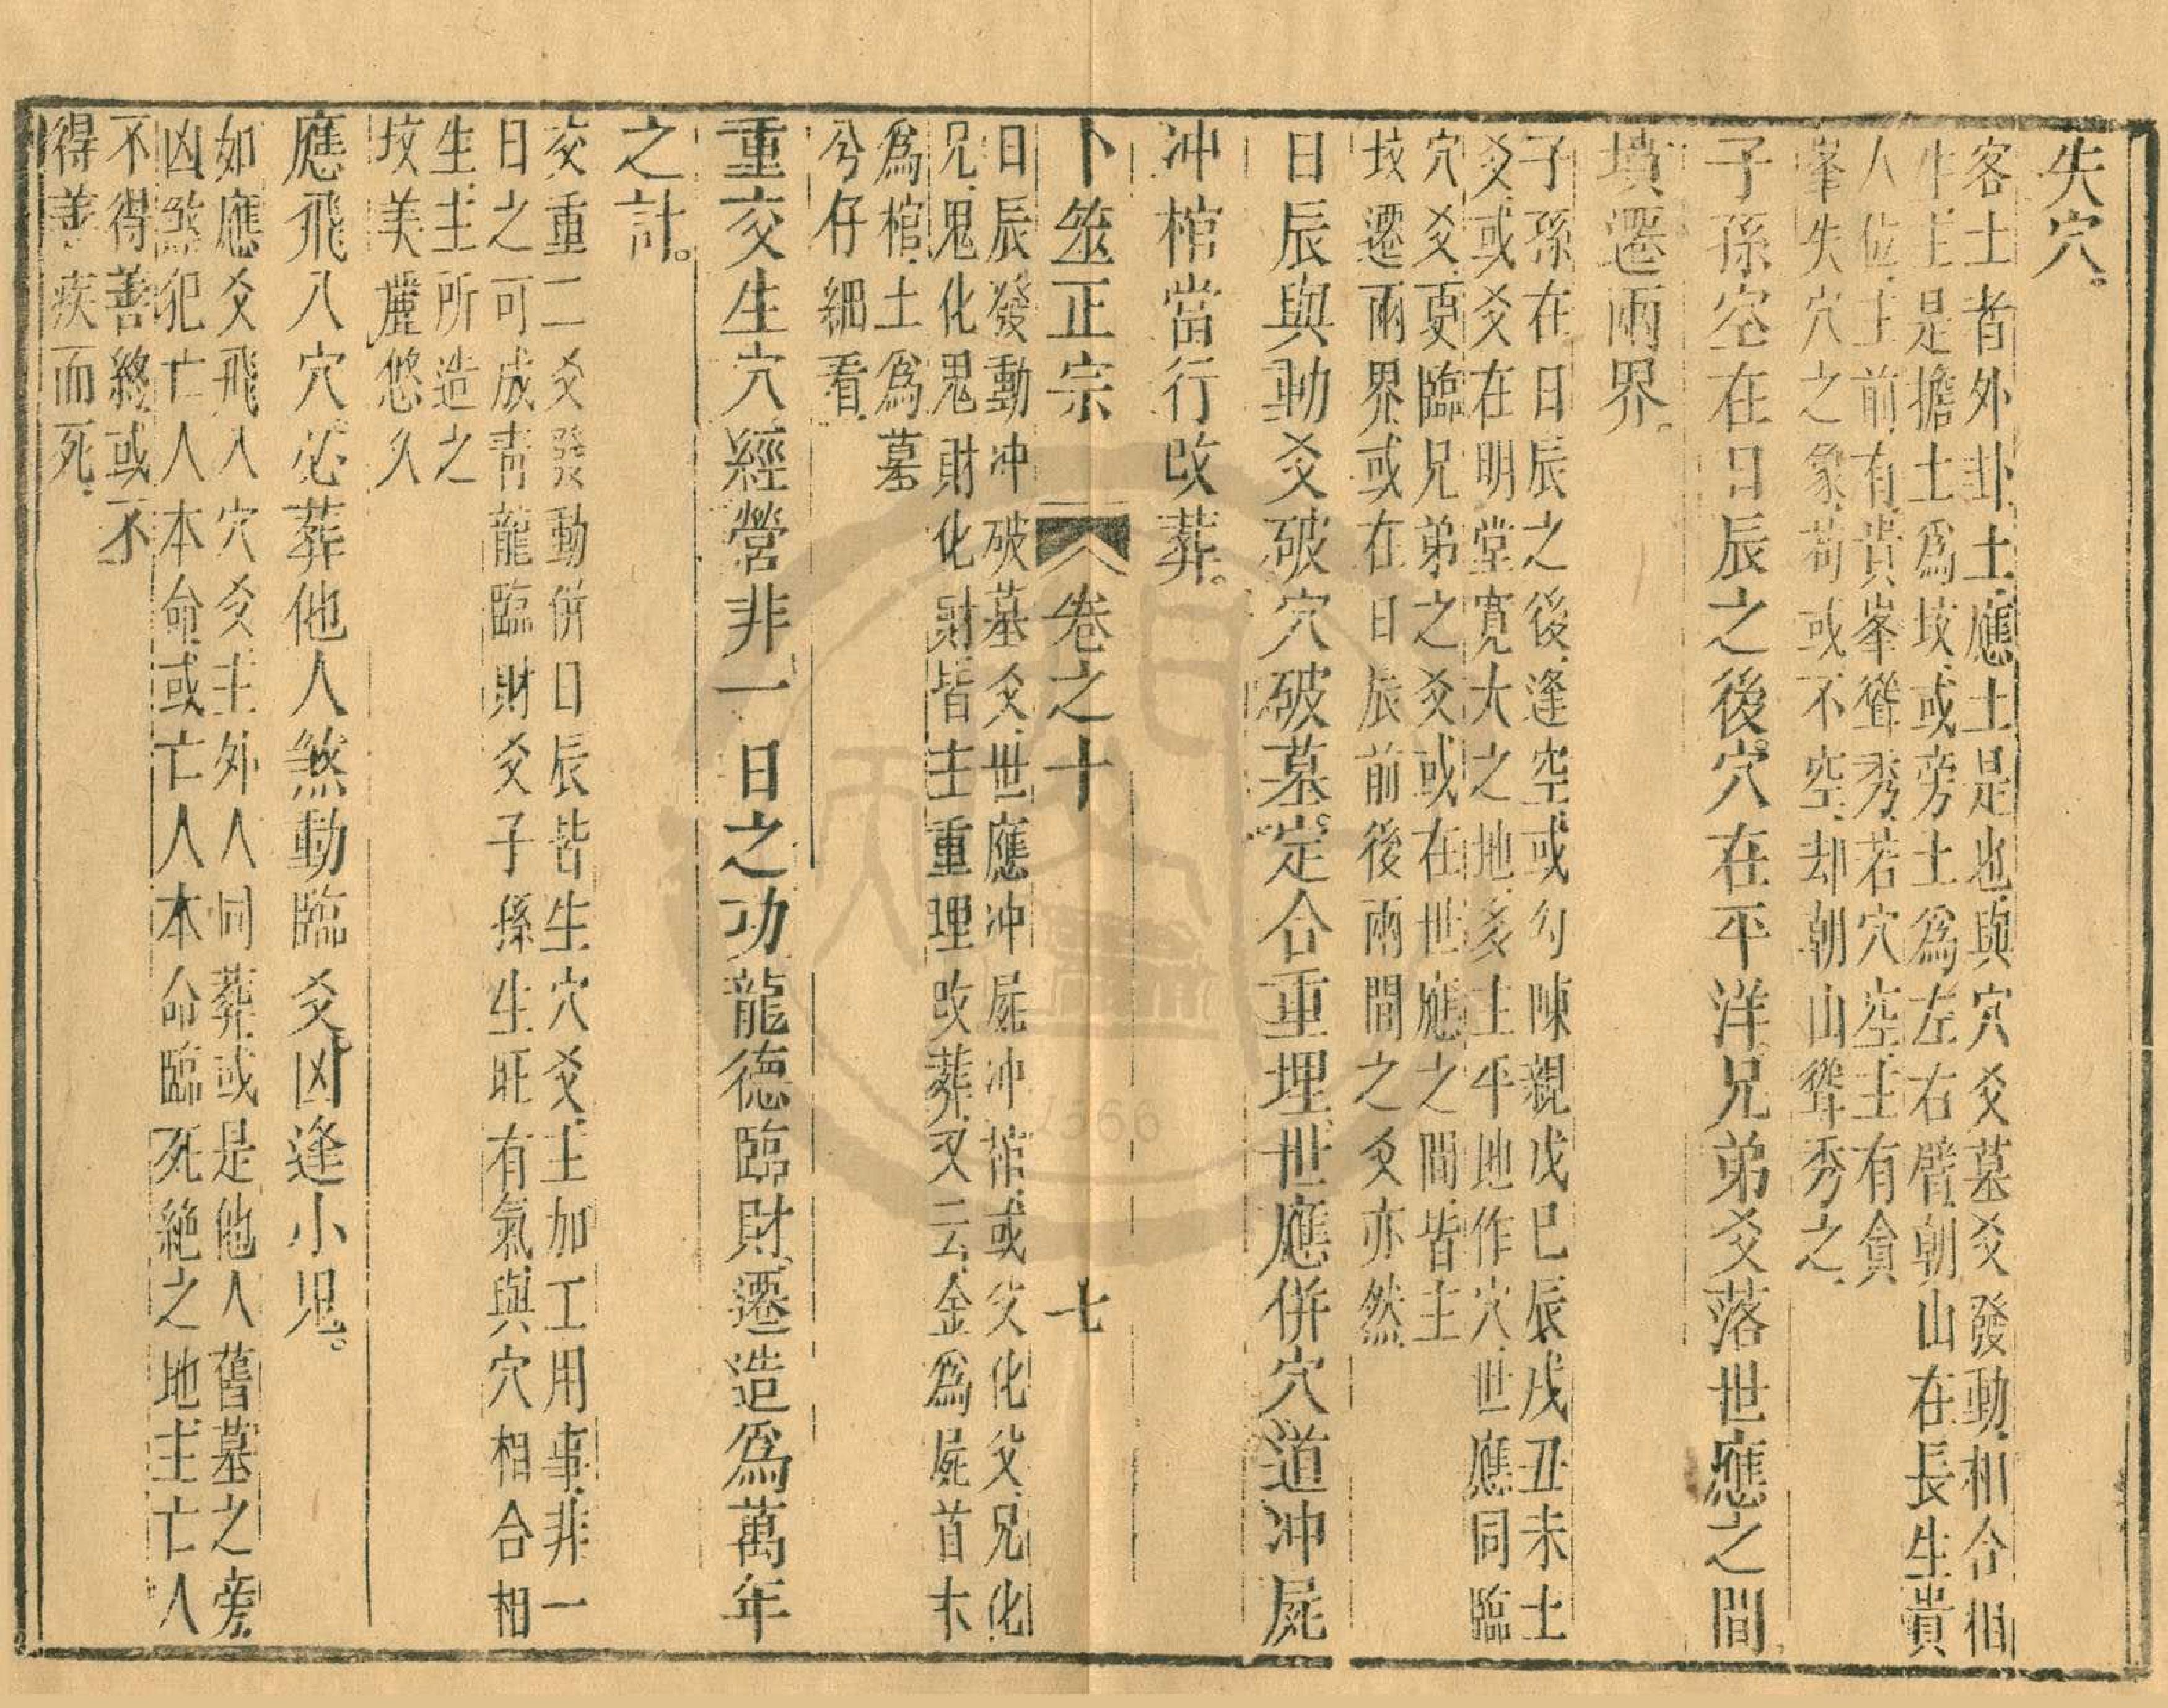 失穴
客土者外卦土應土是也與穴爻墓爻發動相合相
生主是擔土為坟或旁土為左右臂朝山在長生貴
人位主前有貴峯聳秀若穴空主有貪
峯失穴之象苟或不空却朝山聳秀之
子孫空在日辰之後穴在平洋兄弟爻落世應之間
墳遷兩界
子孫在日辰之後逢空或勾陳親戊巳辰戌丑未土
爻或爻在明堂寛大之地亥主平地作穴世應同臨
穴爻更臨兄弟之爻或在世應之間皆主
坟遷兩界或在日辰前後兩間之爻亦然
日辰與動爻破穴破墓定合重埋世應併穴道冲屍
冲棺當行改葬
卜筮正宗 卷之十 七
日辰發動冲破墓爻世應冲屍冲棺或父化父兄化
兄鬼化鬼財化財皆主重理改葬又云金為屍首木
為棺土為墓
兮仔細看
重交生穴經營非一日之功龍德臨財遷造為萬年
之計
交重二爻發動併日辰皆生穴爻主加工用事非一
日之可成靑龍臨財爻子孫生旺有氣與穴相合相
生主所造之
坟美麗悠久
應飛入穴必葬他人煞動臨爻凶逢小児
如應爻飛入穴爻主外人同葬或是他人舊墓之旁
凶煞犯亡人本命或亡人本命臨死絕之地主亡人
不得善終或不
得善疾而死